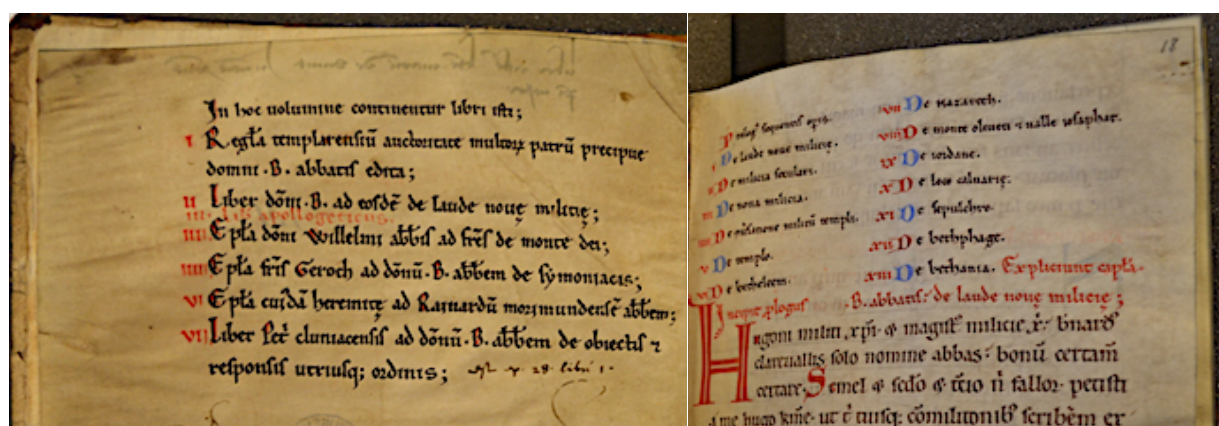 In hoc uolumine continentur libri isti;
I Regl̃a templarensiũ auctoritate multoꝝ patrũ precipue
domni ·B· abbatis edita;
II Liber dõni ·B· ad eosdẽ de laude nouę milicię;
III· Lib apollogeticus.
IIII Ep̃la dõni Willelmi ab̃bis ad fr̃es de monte dei;
IIIII Ep̃la fr̃is Geroch ad dõnũ ·B· ab̃bem de symoniacis;
VI Ep̃la cuidã heremitę ad Rainardũ morimundensẽ ab̃bem;
VII Liber Pet̃ cluniacensis ad dõnũ ·B· ab̃bem de obiectis ⁊
responsis utriusq; ordinis;
18
Prolog᷒ sequentis op̃is.
I De laude noue milicię.
II De milicia seculari.
III De noua milicia.
IIII De militũ templi.
V De templo.
VI De bethleem.
VII De nazareth.
VIII De monte oliueti ⁊ ualle iosaphat.
IX De iordane.
X De loco caluarię.
XI De sepulchro.
XII De bethphage.
XIII De bethania. Expliciunt cap̃la.
Incipit p̃logus ·B· abbatis de laude nouę milicię;
Hugoni militi xp̃i ⁊ magist̃ milicie x̃ b̃nard᷒
clareuallis solo nomine abbas bonũ certam̃
certare. Semel ⁊ sc̃do ⁊ t̃cio ñ fallor petisti
a me hugo kĩne ut t̃ tuisq; cõmilitonib᷒ scribẽm ex